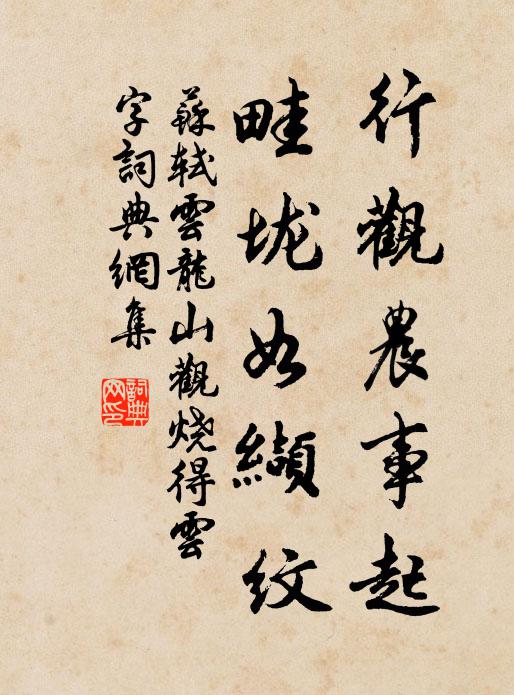 行觀農事起
畦垅如纈紋
蘇軾雲龍山觀燒得雲
字詞典網集
詞典
网印